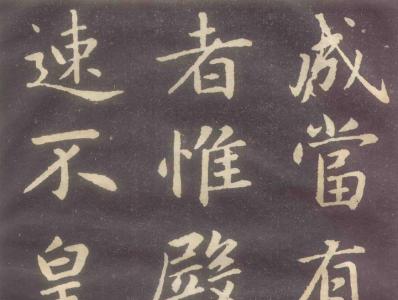 成當有
者惟殿
速不皇